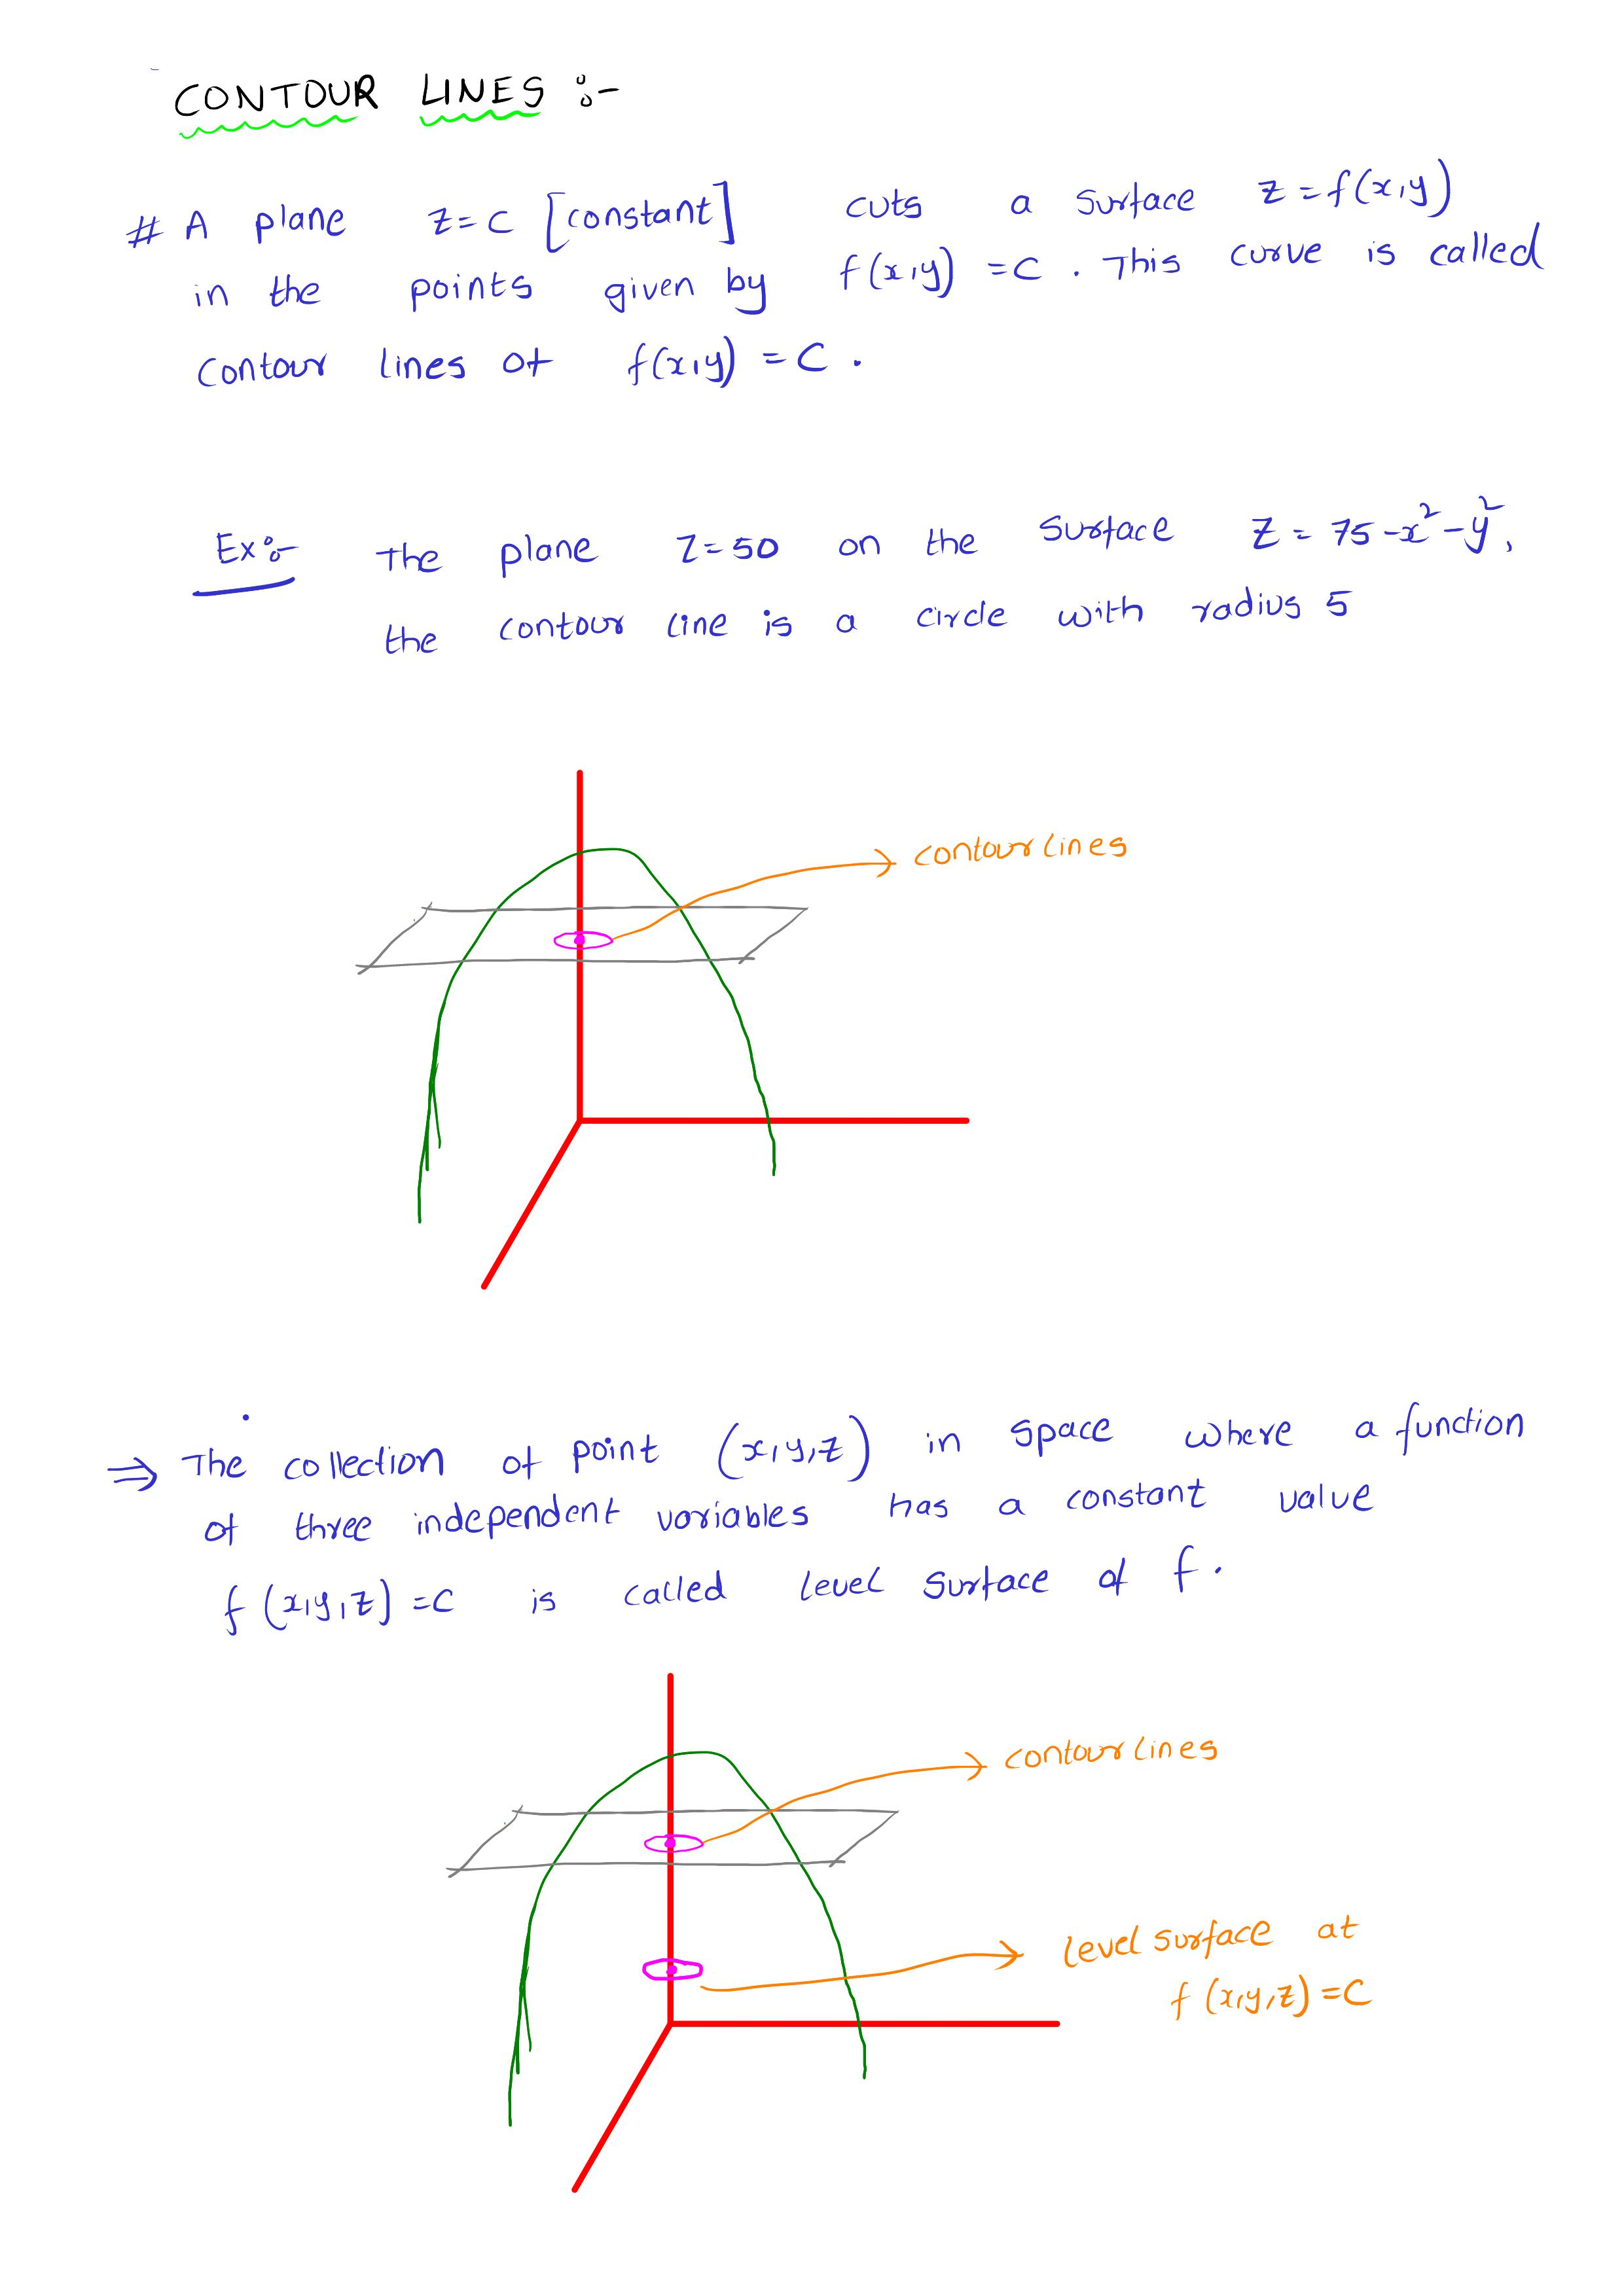 CONTOUR LINES :-
# A plane z=c [constant] cuts a surface z=f(x,y)
in the points given by f(x,y) =c . This curve is called
contour lines of f(x,y) = c .
Ex:- The plane z=50 on the surface z = 75-x²-y²,
the contour line is a circle with radius 5
contour lines
⇒ The collection of point (x,y,z) in space where a function
of three independent variables has a constant value
f (x,y,z) =c is called level surface of f.
contour lines
level surface at
f (x,y,z) =c